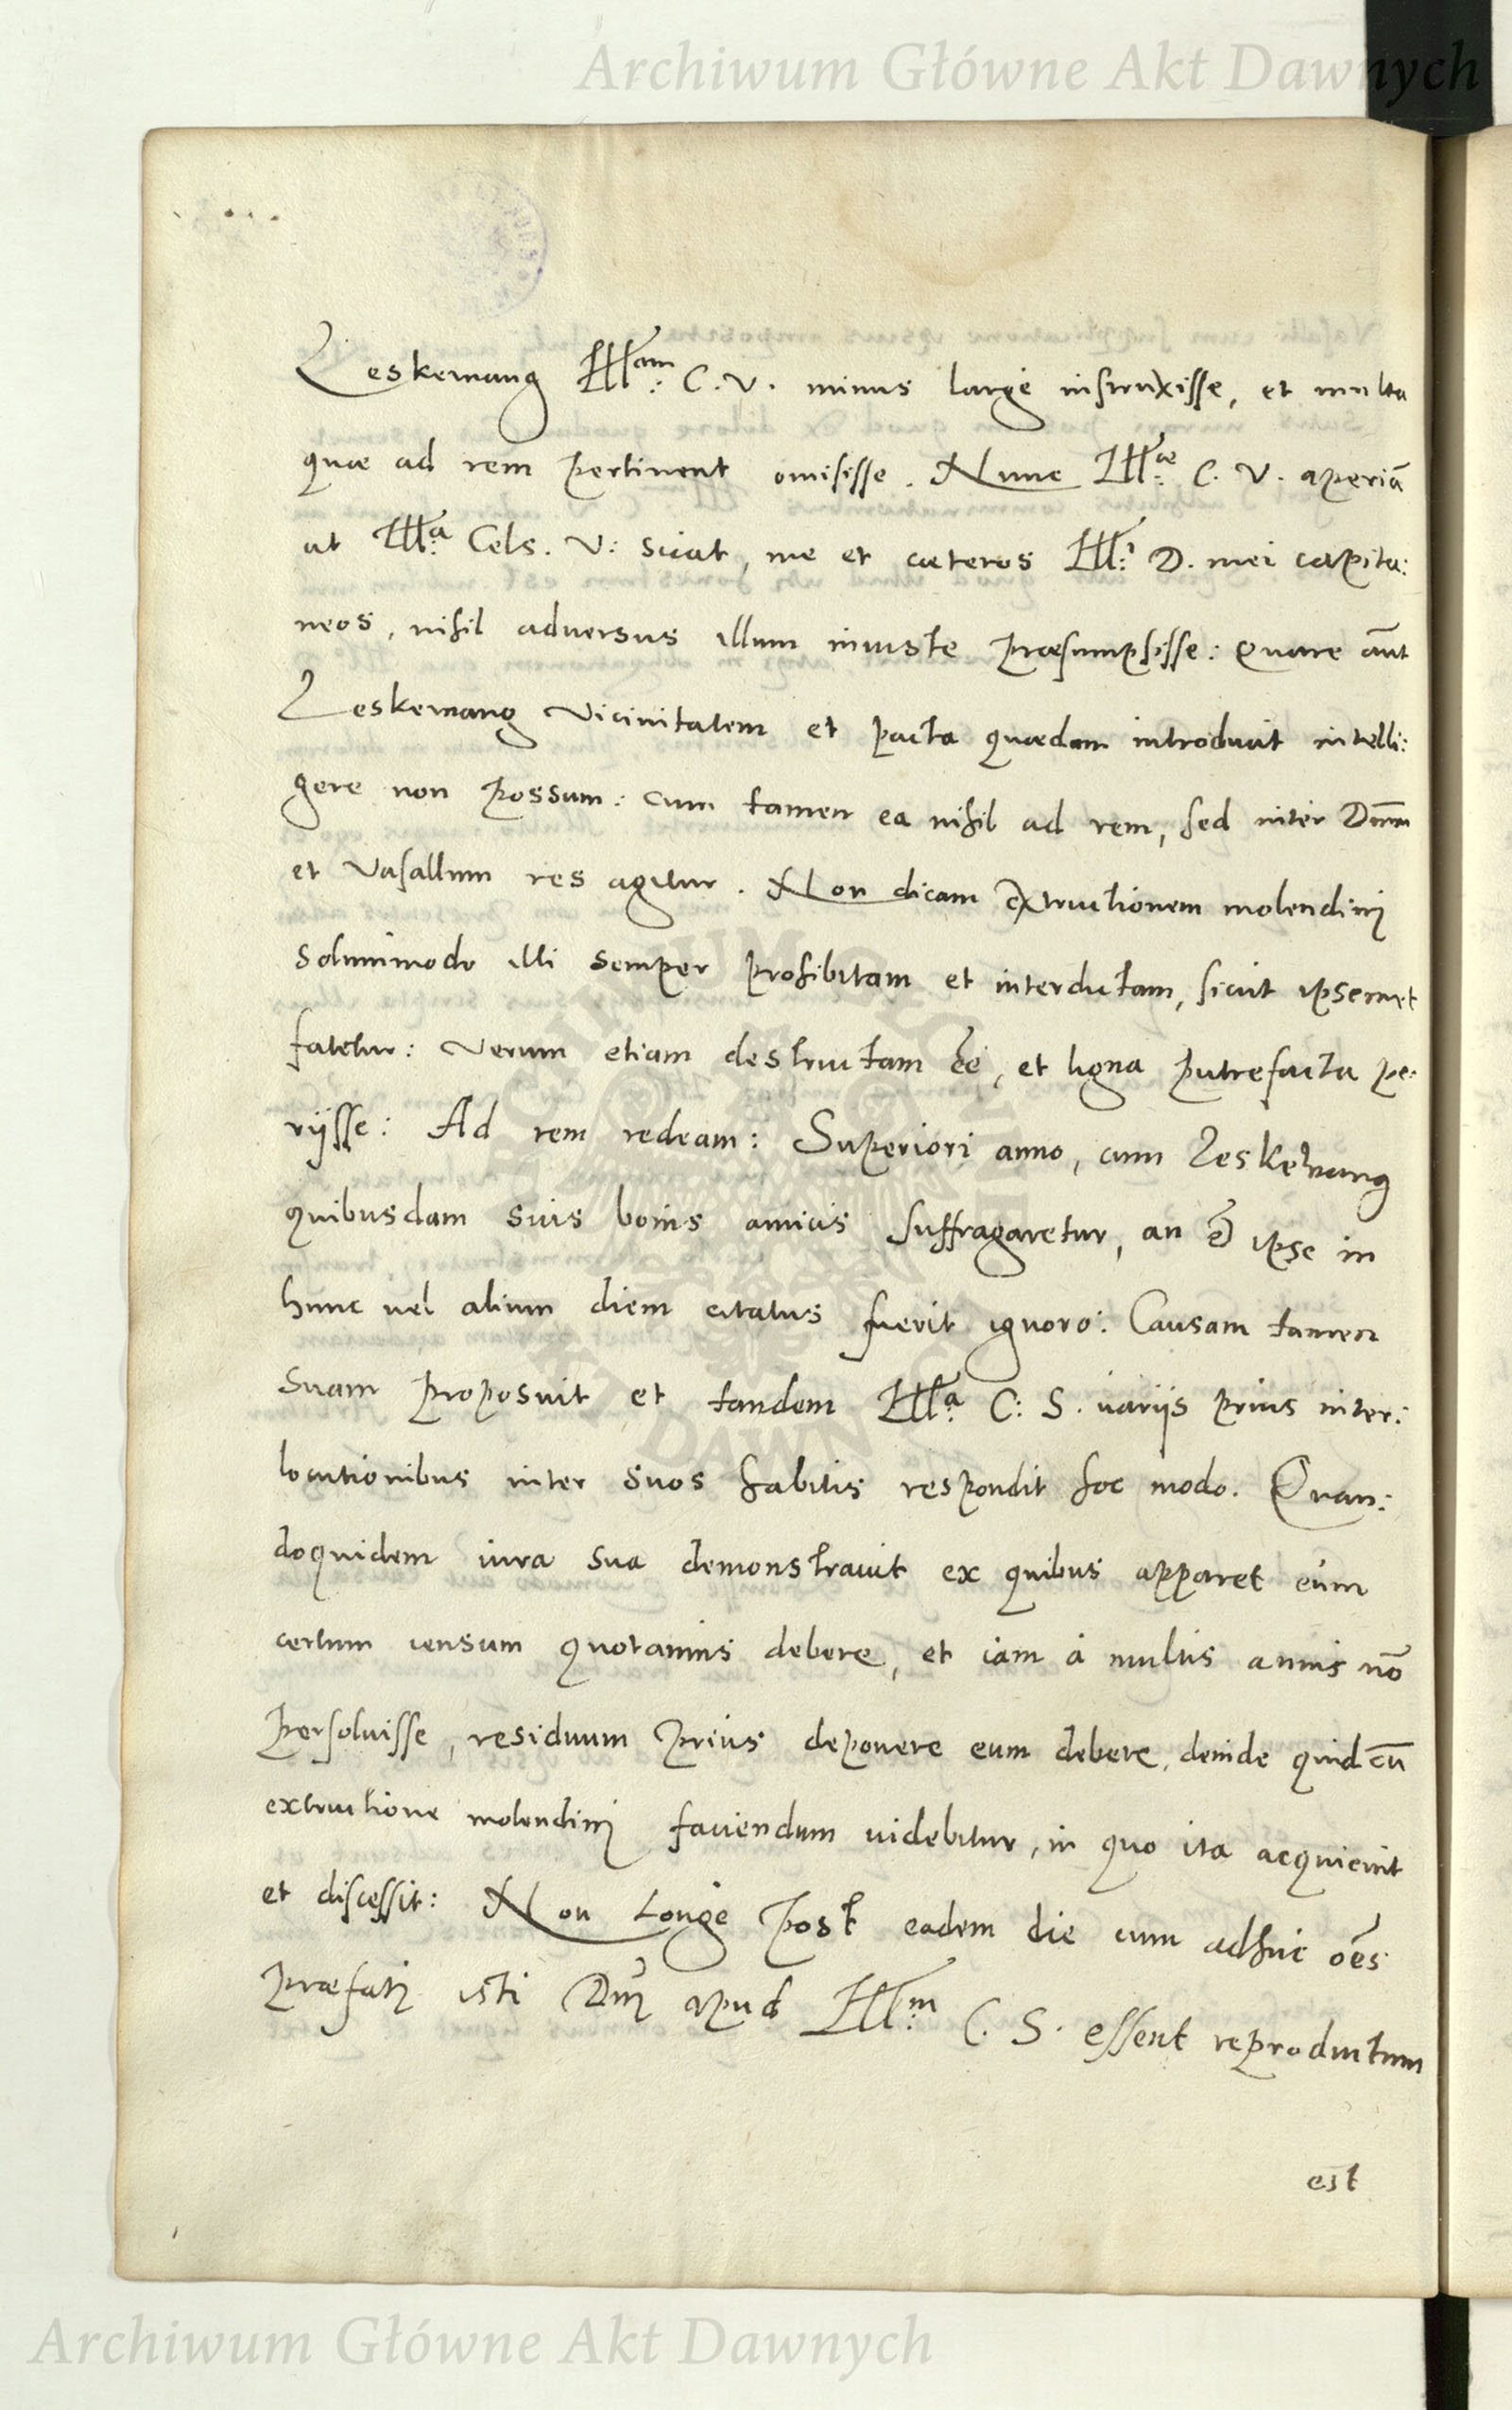 Archiwum Główne Akt Dawnych
Leskewang Illam: C. V. minus largè instruxisse, et multa
quae ad rem pertinent omisisse. Nunc Illae: C. V. aperiã
ut Illa: Cels. V: sciat, me et caeteros Illi: D. mei capita:
neos, nihil adversus illum iniuste praesumpsisse: Quare aũt
Leskewang Vicinitatem et pacta quaedam introducit intelli:
gere non possum: cum tamen ea nihil ad rem, sed inter Dnm̃
et Vasallum res agitur. Non dicam extructionem molendinj
solummodo illi semper prohibitam et interdictam, sicut ipsemet
fatetur: Verum etiam destructam eẽ, et ligna putrefacta pe:
rijsse: Ad rem redeam: Superiori anno, cum Leskewang
quibusdam suis bonis amicis suffragaretur, an ẽ ipse in
hunc vel alium diem citatus fuerit ignoro: Causam tamen
suam proposuit et tandem Illa: C: S. varijs prius inter:
locutionibus inter suos habitis respondit hoc modo. Quan:
doquidem iura sua demonstravit ex quibus apparet eum
certum censum quotannis debere, et iam à multis annis nõ
persoluisse, residuum prius deponere eum debere, deinde quid cũ
extructione molendinj faciendum videbitur, in quo ita acquievit
et discessit: Non Longè post eadem die cum adhuc oẽs
praefatj isti Dnj apud Illm: C. S. essent reproductum
est
Archiwum Główne Akt Dawnych